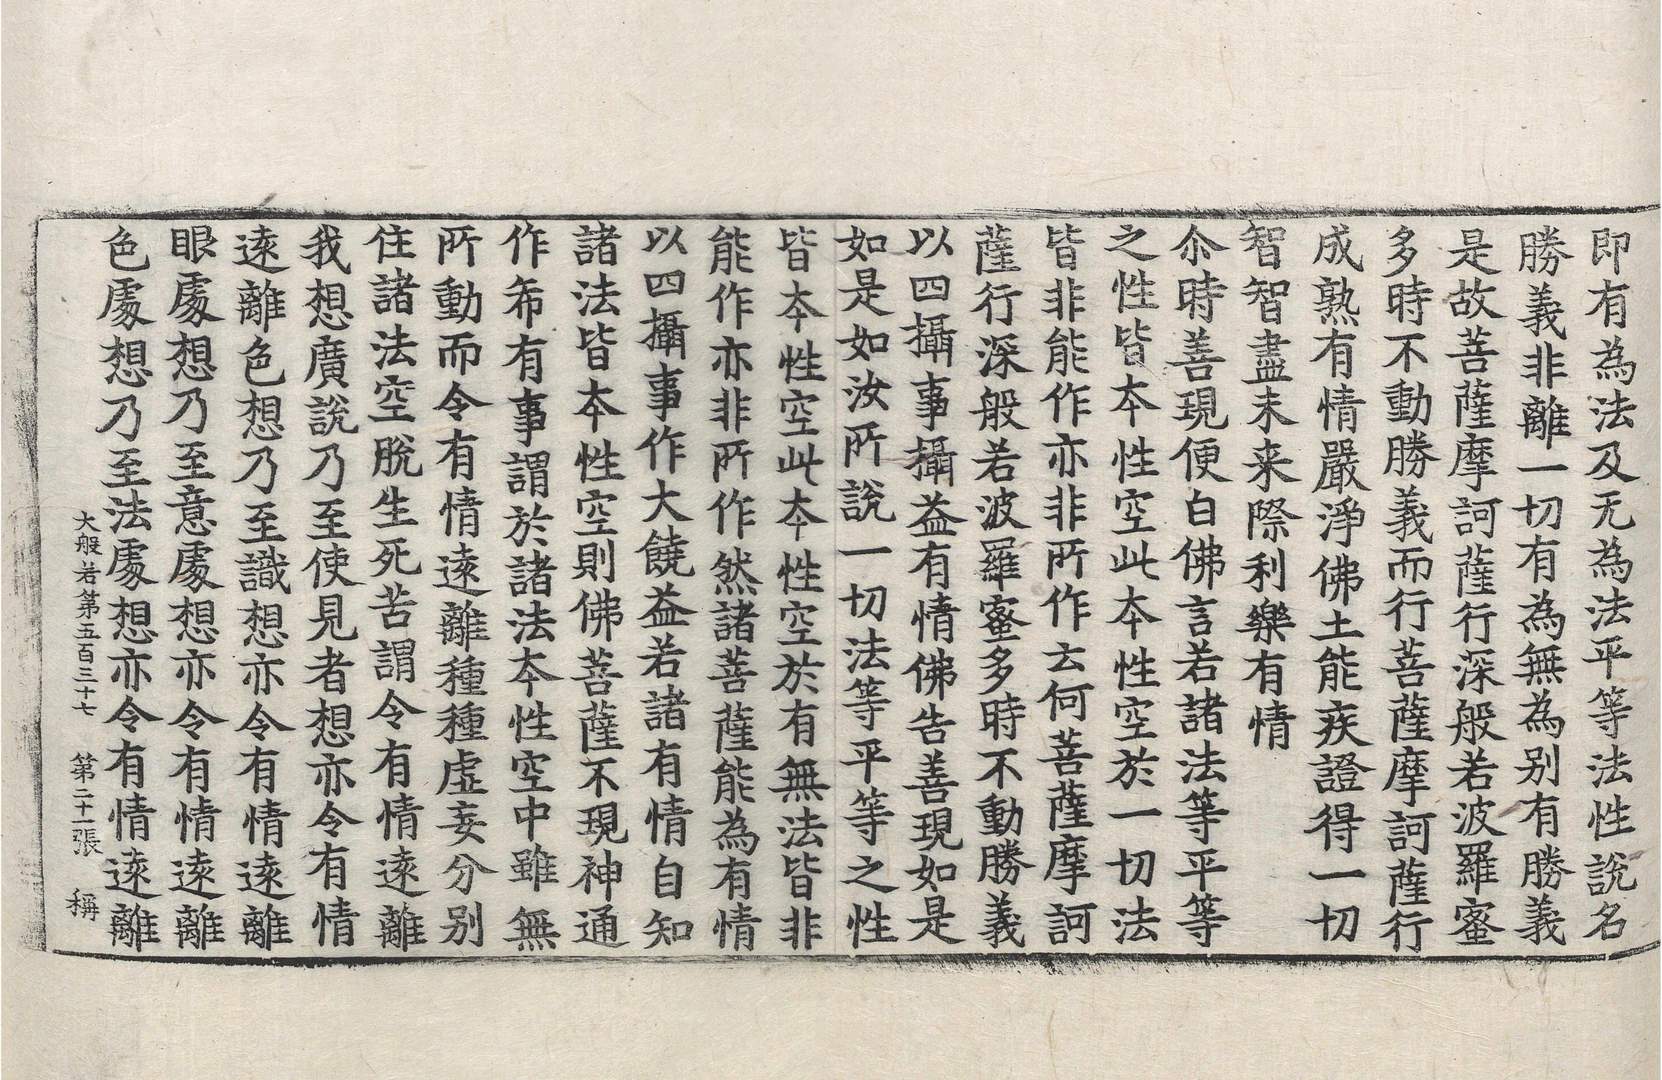 即有為法及无為法平等法性說名
勝義非離一切有為無為别有勝義
是故菩薩摩訶薩行深般若波羅蜜
多時不動勝義而行菩薩摩訶薩行
成熟有情嚴淨佛土能疾證得一切
智智盡未来際利樂有情
尒時善現便白佛言若諸法等平等
之性皆夲性空此夲性空於一切法
皆非能作亦非所作云何菩薩摩訶
薩行深般若波羅蜜多時不動勝義
以四攝事攝益有情佛告善現如是
如是如汝所說一切法等平等之性
皆夲性空此夲性空於有無法皆非
能作亦非所作然諸菩薩能為有情
以四攝事作大饒益若諸有情自知
諸法皆夲性空則佛菩薩不現神通
作希有事謂於諸法夲性空中雖無
所動而令有情遠離種種虛妄分别
住諸法空脫生死苦謂令有情遠離
我想廣說乃至使見者想亦令有情
遠離色想乃至識想亦令有情遠離
眼處想乃至意處想亦令有情遠離
色處想乃至法處想亦令有情遠離
大般若第五百三十七　第二十一張　稱